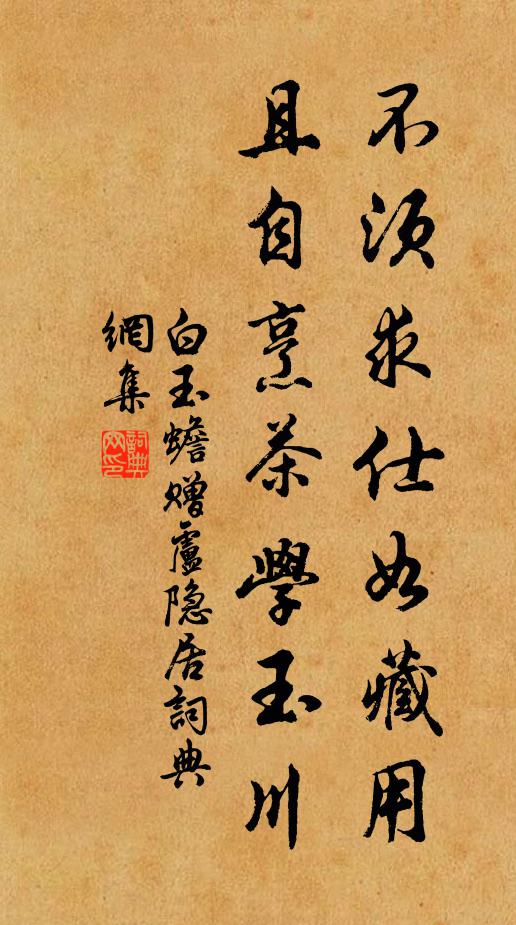 不須求仕如藏用
且自烹茶學玉川
白玉蟾贈盧隐居詞典
網集
詞典
网印